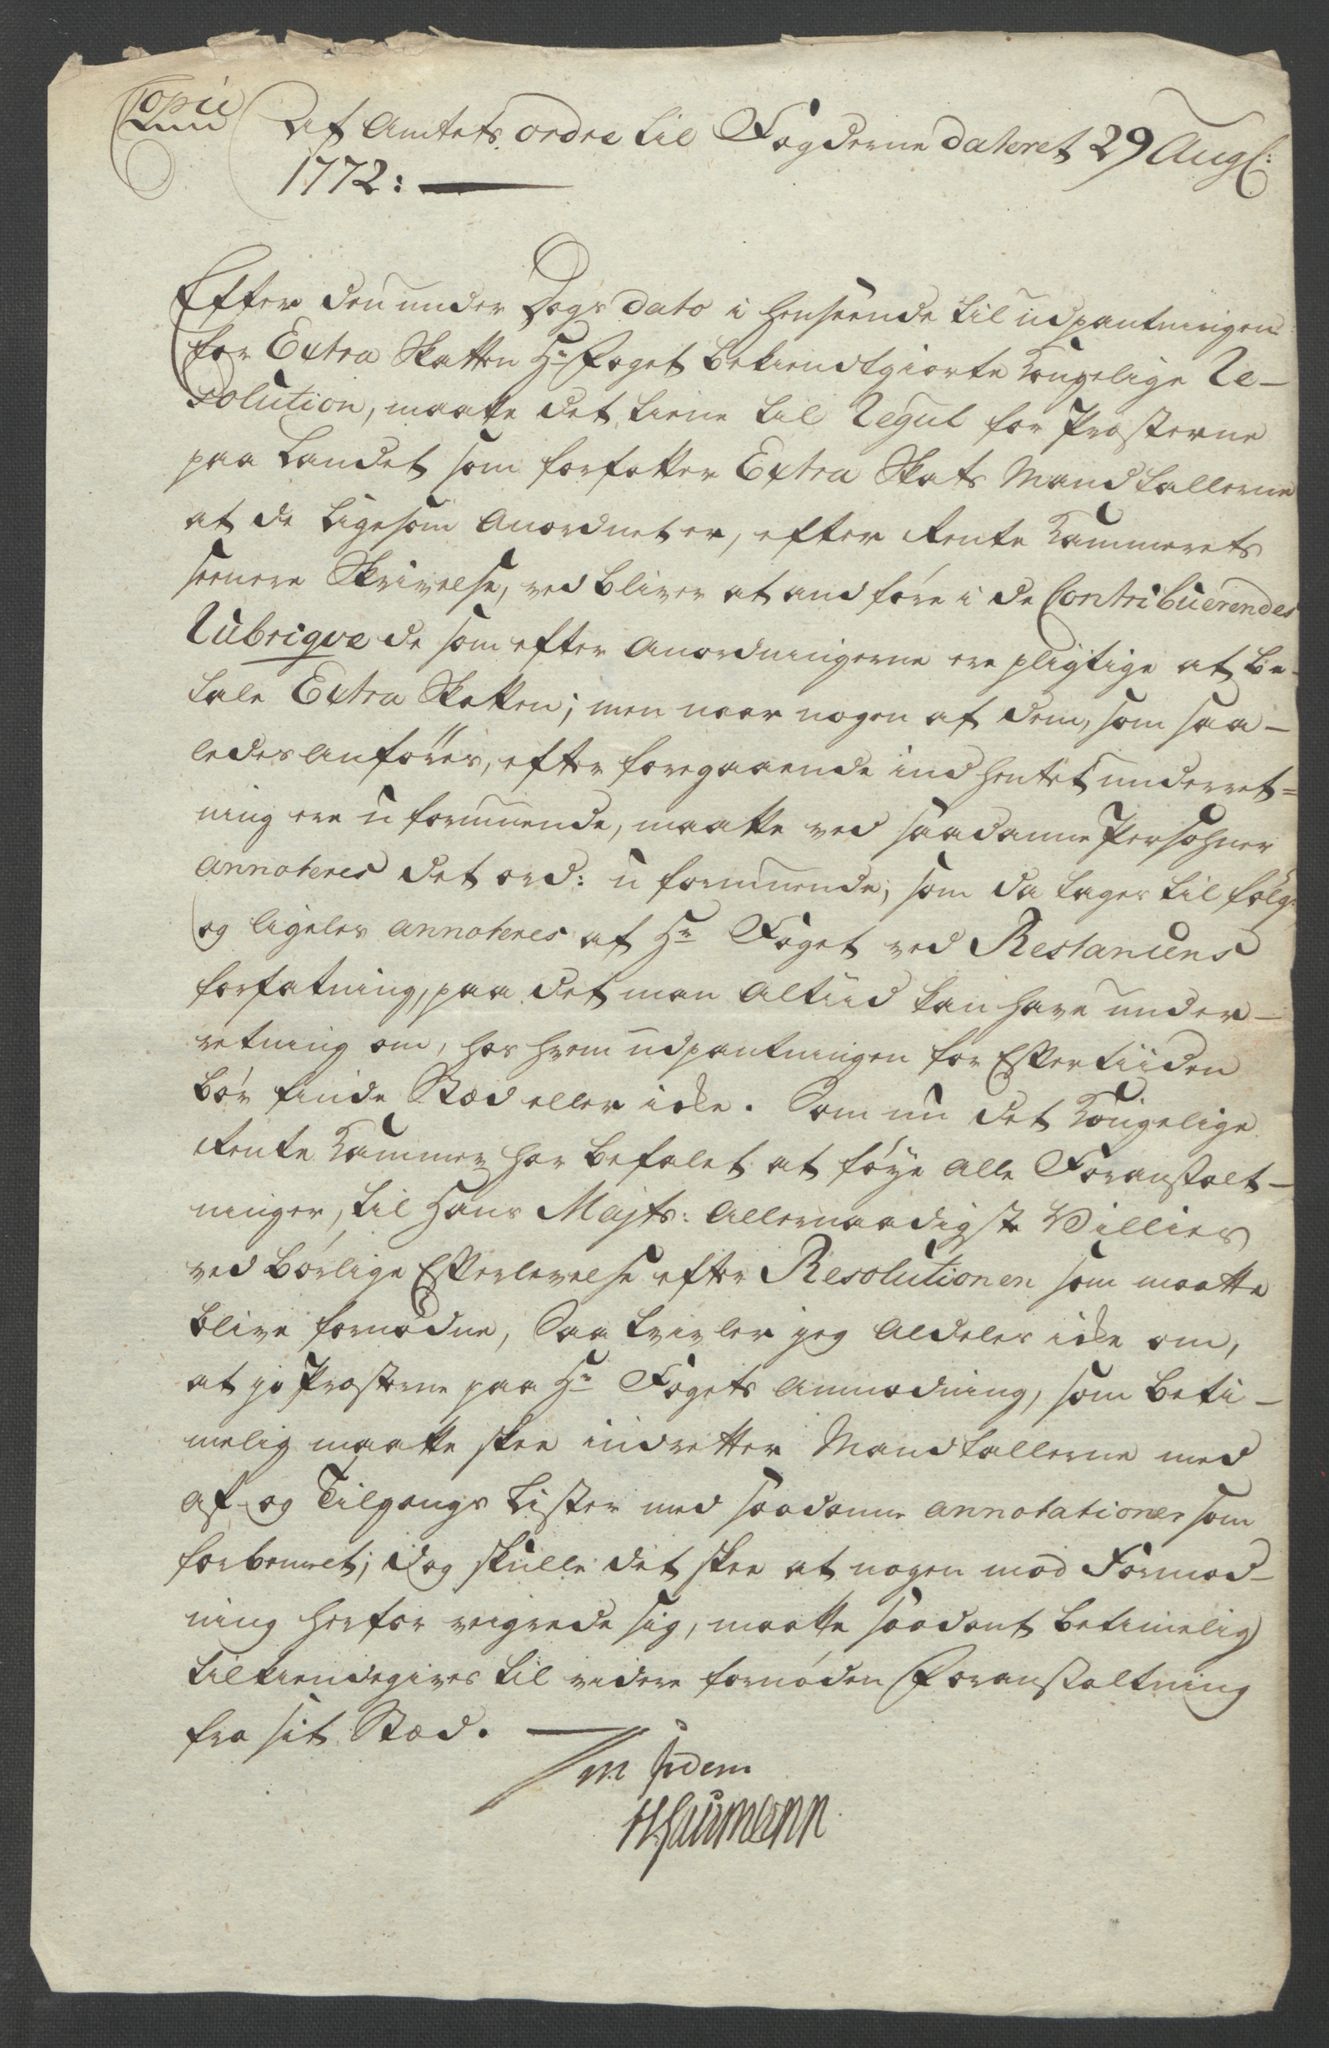 Copie
Af Amtets ordre til Fogderne dateret 29 Aug:
1772:
Efter den under Dags dato i henseende til udpantningen
for Extra Skatten Hr Foget bekiendtgiorte Kongelige Re-
solution, maatte det tiene til Regul for Præsterne
paa Landet som forfatter Extra Skats Mandtallerne
at de ligesom Anordnet er, efter Rente Kammerets
seenere Skrivelse, ved bliver at andføre i de Contribuerendes
Rubriqve de som efter Anordningerne ere pligtige at be-
tale Extra Skatten; men naar nogen af dem, som saa-
ledes anføres, efter foregaaende indhentet underret-
ning ere uformuende, maatte ved saadanne Persohner
annoteres det ord: uformuende, som da tages til følge
og ligeles annoteres af Hr Foget ved Restancens
forfatning, paa det man Altiid kan have under-
retning om, hos hvem udpantningen for Eftertiiden
bør finde Stæd eller icke. Som nu det Kongelige
Rente Kammer har befalet at føye Alle Foranstalt-
ninger, til Hans Majts: Allernaadigste Villies
ved børlige Efterlevelse efter Resolutionen som maatte
blive fornødne, Saa tvivler jeg Aldeles icke om,
at jo Præsterne paa Hr Fogets Anmodning, som beti-
melig maatte skee indretter Mandtallerne med
Af- og Tilgangs Lister med saadanne annotationer som
forbemelt; dog skulle det skee at nogen mod Formod-
ning herfor veigrede sig, maatte saadant betimelig
tilkiendegives til videre fornøden Foranstaltning
fra sit Stæd.
in fidem